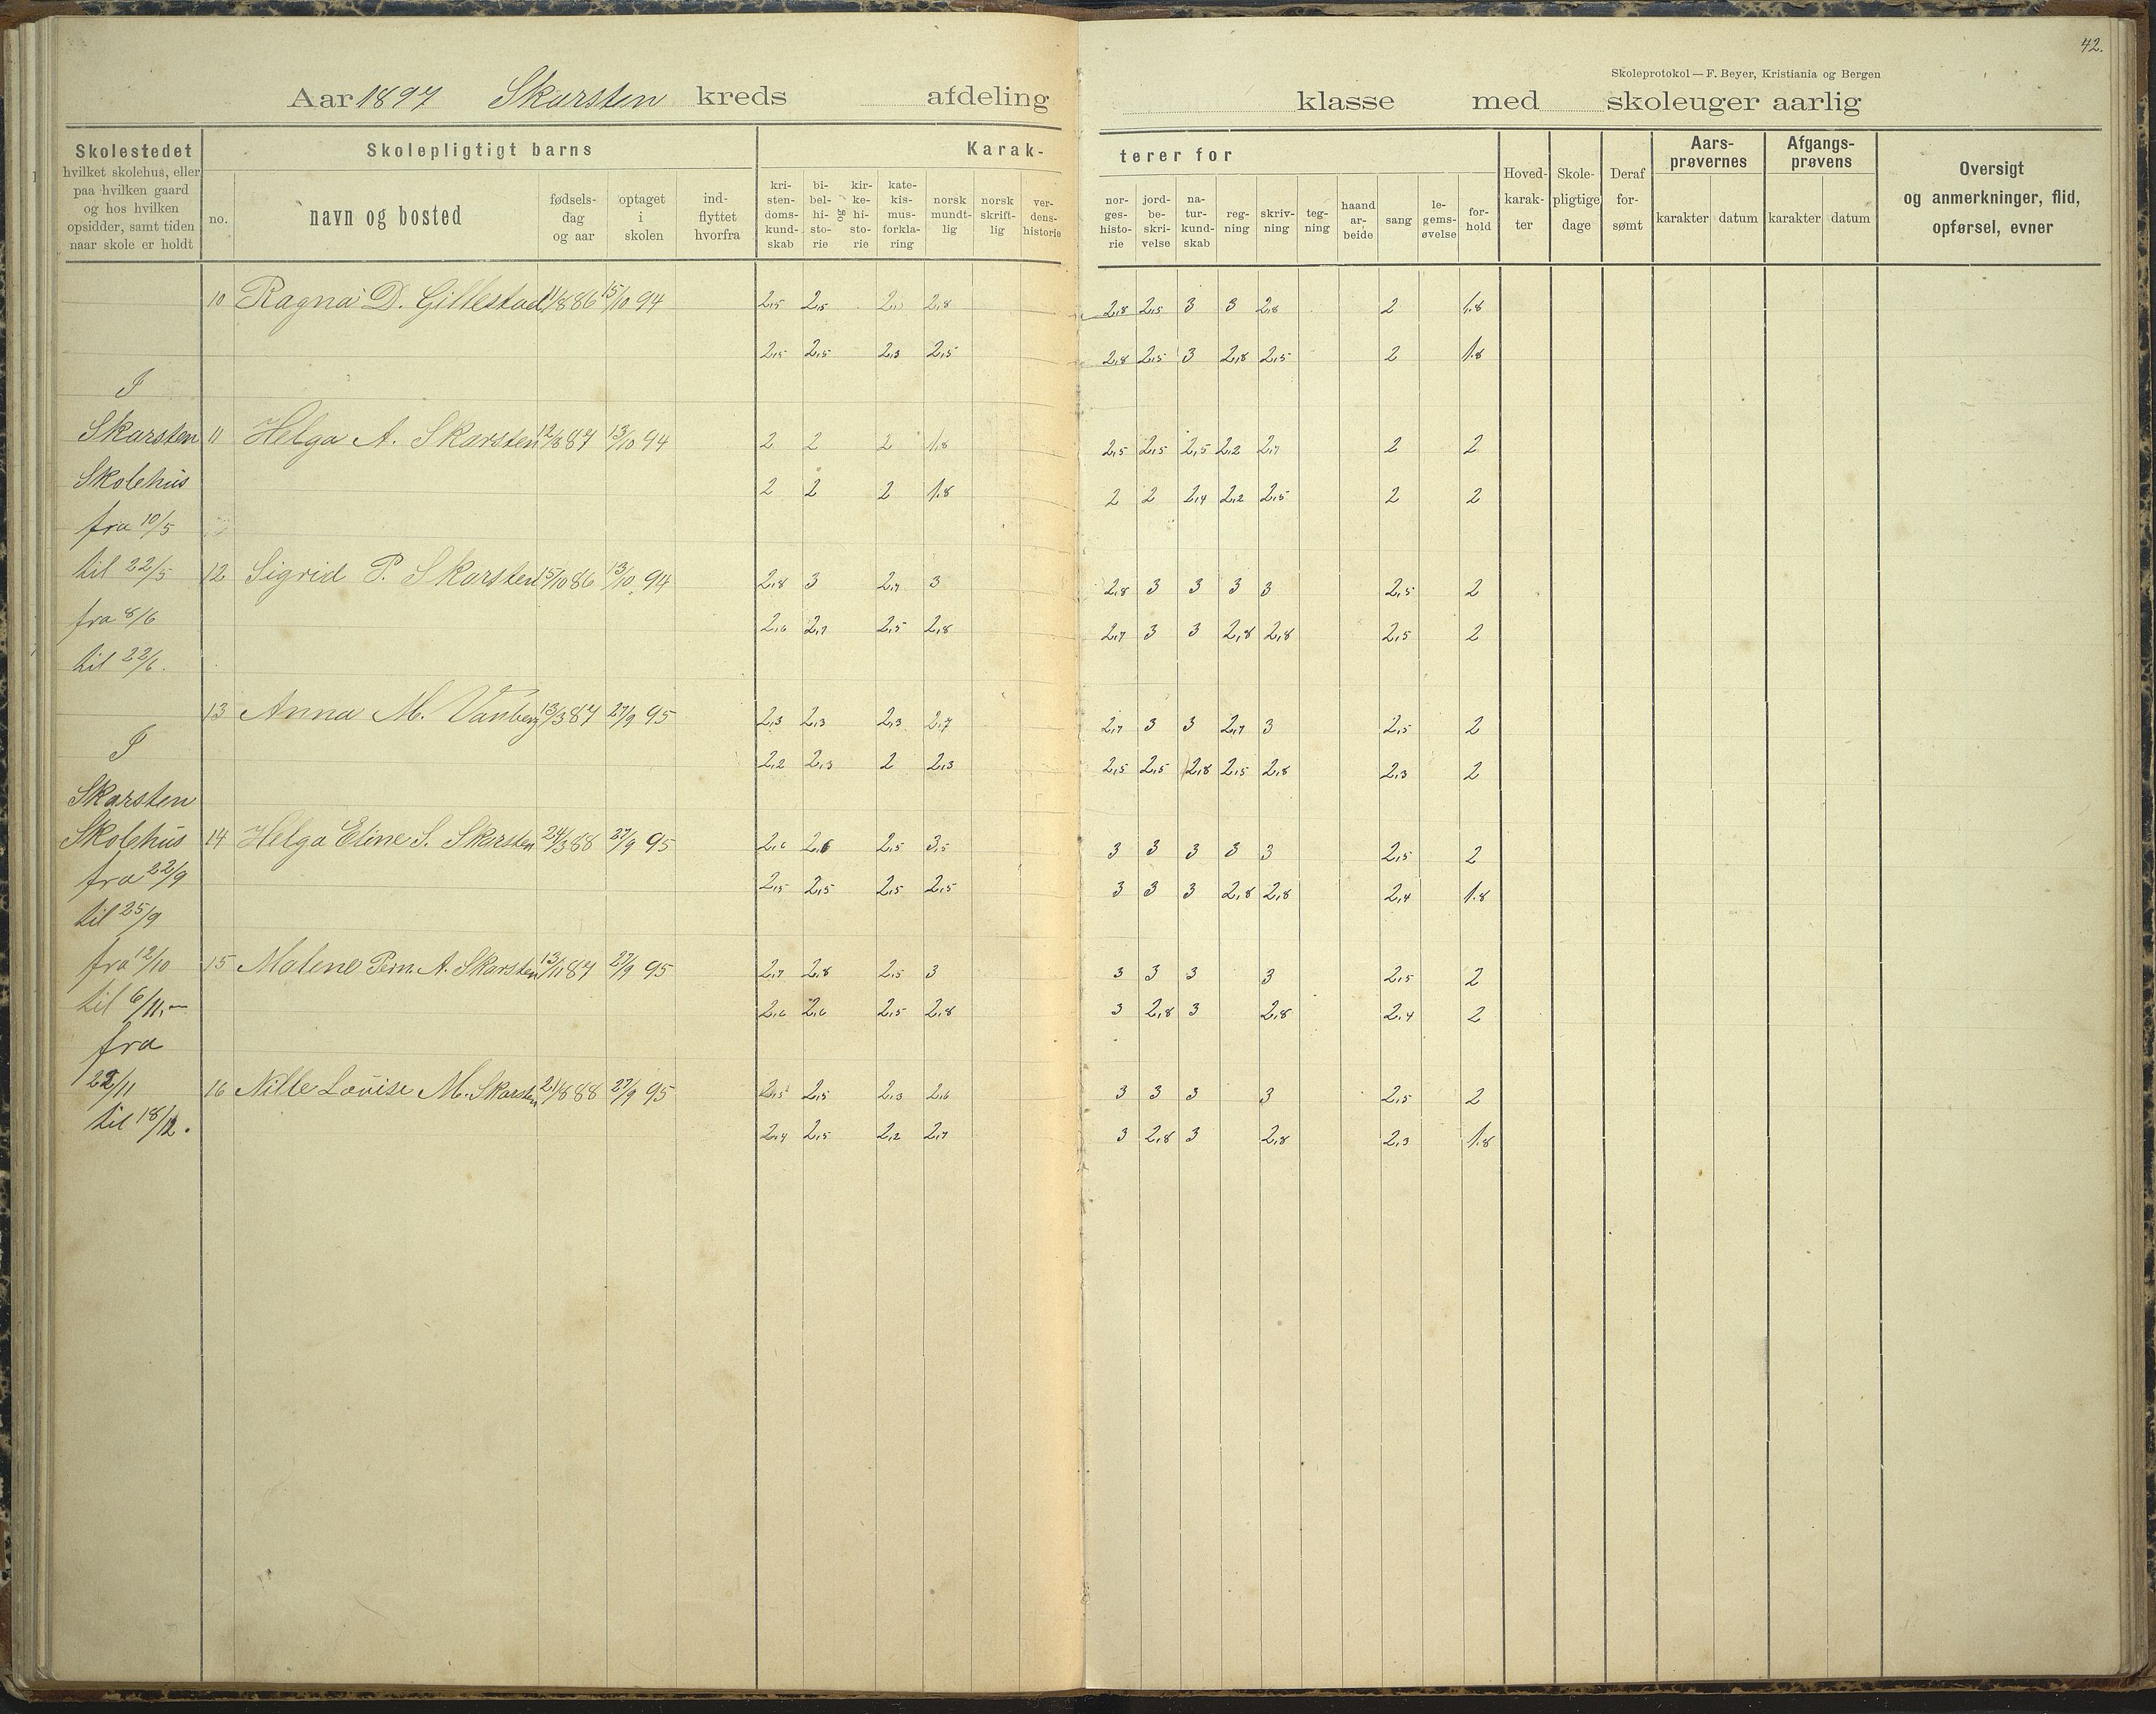 42.
Skoleprotokol — F. Beyer, Kristiania og Bergen
Aar 1897 Skarsten kreds afdeling klasse med skoleuger aarlig
Skolestedet
hvilket skolehus, eller
paa hvilken gaard
og hos hvilken
opsidder, samt tiden
naar skole er holdt
Skolepligtigt barns
no.
navn og bosted
fødsels-
dag
og aar
optaget
i
skolen
ind-
flyttet
hvorfra
Karak-
terer for
kri-
sten-
doms-
kund-
skab
bi-
bel-
hi-
sto-
rie
og
kir-
ke-
hi-
sto-
rie
kate-
kis-
mus-
forkla-
ring
norsk
mundt-
lig
norsk
skrift-
lig
ver-
dens-
historie
nor-
ges-
histo-
rie
jord-
be-
skri-
velse
na-
tur-
kund-
skab
reg-
ning
skriv-
ning
teg-
ning
haand
ar-
beide
sang
le-
gems-
øvelse
for-
hold
Hoved-
karak-
ter
Skole-
pligtige
dage
Deraf
for-
sømt
Aars-
prøvernes
karakter datum
Afgangs-
prøvens
karakter datum
Oversigt
og anmerkninger, flid,
opførsel, evner
10 Ragna D. Gillestad 11/8 86 15/10 94 2,5 2,5 2,8 2,8 2,5 3 3 2,8 2 1.8
2,5 2,5 2,3 2,5 2,8 2,5 3 2,8 2,5 2 1.8
I
Skarsten 11 Helga A. Skarsten 12/8 87 13/10 94 2 2 2 1.8 2,5 2,5 2,5 2,2 2,7 2 2
Skolehus 2 2 2 1.8 2 2 2,4 2,2 2,5 2 2
fra 10/5
til 22/5 12 Sigrid P. Skarsten 15/10 86 13/10 94 2,8 3 2,7 3 2,8 3 3 3 3 2,5 2
fra 8/6 2,6 2,7 2,5 2,8 2,7 3 3 2,8 2,8 2,5 2
til 22/6.
13 Anna M. Vanberg 13/3 87 27/9 95 2,3 2,3 2,3 2,7 2,7 3 3 2,7 3 2,5 2
I 2,2 2,3 2 2,3 2,5 2,5 2,8 2,5 2,8 2,3 2
Skarsten
Skolehus 14 Helga Eline S. Skarsten 24/3 88 27/9 95 2,6 2,6 2,5 3,5 3 3 3 3 3 2,5 2
fra 22/9 2,5 2,5 2,5 2,5 3 3 3 2,8 2,8 2,4 1.8
til 25/9
fra 12/10 15 Malene Pern. A. Skarsten 13/11 87 27/9 95 2,7 2,8 2,5 3 3 3 3 3 2,5 2
til 6/11.— 2,6 2,6 2,5 2,8 3 2,8 3 2,8 2,4 2
fra
22/11 16 Nille Louise M. Skarsten 21/8 88 27/9 95 2,5 2,5 2,3 2,6 3 3 3 3 2,5 2
til 18/12. 2,4 2,5 2,2 2,7 3 2,8 3 2,8 2,3 1.8